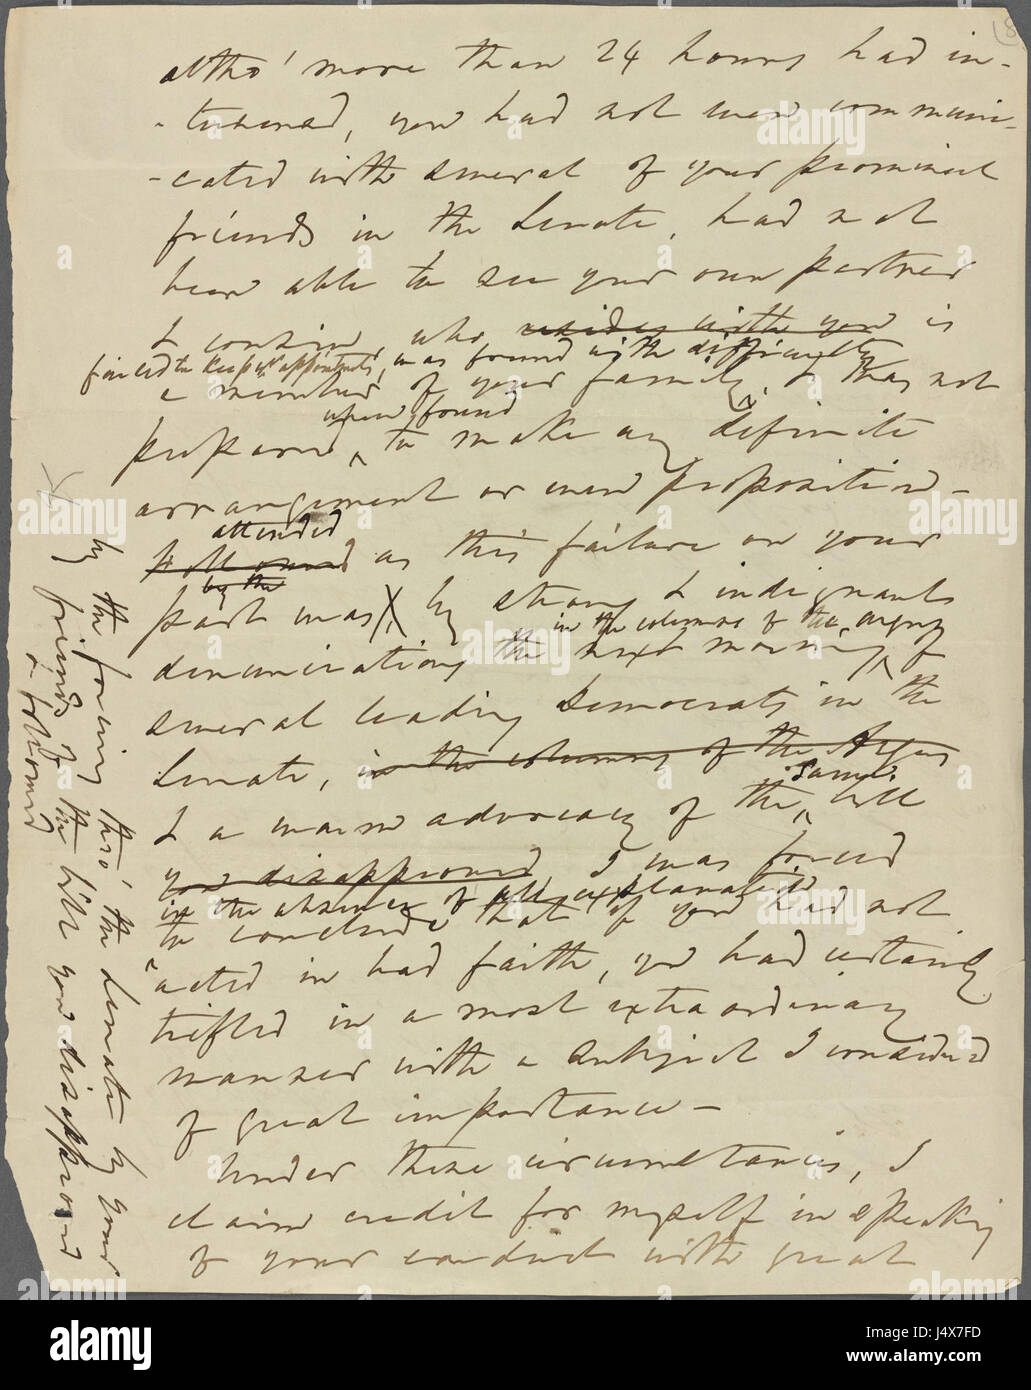 (8
altho' more than 24 hours had in-
-tervened, you had not even communi-
-cated with several of your prominent
friends in the Senate, had not
been able to see your own partner
& cousin, who resides with you is
forced to keep appointments, was found with difficulty
a member of your family, & was not
when found
prepared to make any definite
arrangement or even proposition -
attended
followed as this failure on your
by the
part was by strong & indignant
in the columns of the argus
denunciations the next morning, of
several leading Democrats in the
Senate, in the columns of the Argus
same
& a warm advocacy of the bill
you disapproved, I was forced
in the absence of all explanation
to conclude that if you had not
acted in bad faith, you had certainly
trifled in a most extraordinary
manner with a subject I considered
of great importance -
Under these circumstances, I
claim credit for myself in speaking
of your conduct with great
by the forcing thro' the Senate by your
friends of the bill you disapproved
a followed
alamy
alamy
Image ID: J4X7FD
www.alamy.com